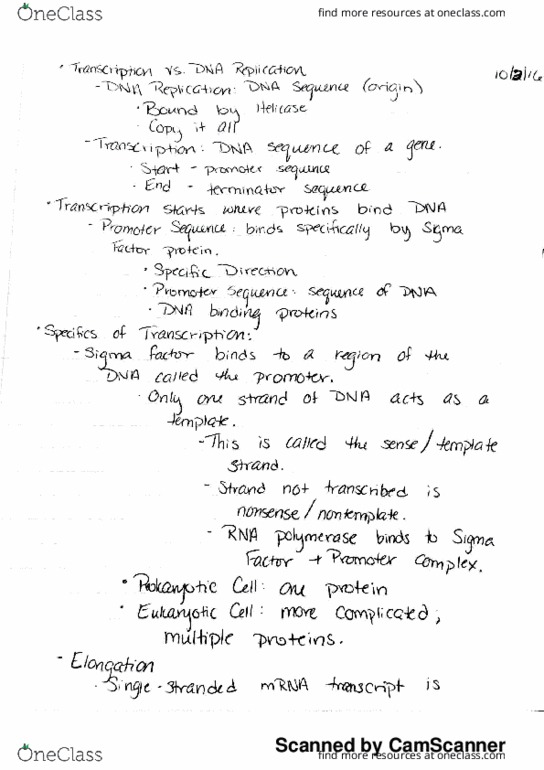 OneClass
find more resources at oneclass.com
• Transcription vs. DNA Replication
10/2/16
- DNA Replication: DNA sequence (origin)
• Bound by Helicase
• Copy it all
- Transcription: DNA sequence of a gene.
• Start - promoter sequence
• End - terminator sequence
• Transcription starts where proteins bind DNA
- Promoter Sequence: binds specifically by Sigma
Factor protein.
• Specific Direction
• Promoter Sequence: sequence of DNA
• DNA binding proteins
• Specifics of Transcription:
- Sigma factor binds to a region of the
DNA called the promoter.
• Only one strand of DNA acts as a
template.
- This is called the sense/template
strand.
- Strand not transcribed is
nonsense/nontemplate.
- RNA polymerase binds to Sigma
Factor + Promoter complex.
• Prokaryotic Cell: one protein
• Eukaryotic Cell: more complicated;
multiple proteins.
- Elongation
• Single-stranded mRNA transcript is
Scanned by CamScanner
OneClass
find more resources at oneclass.com